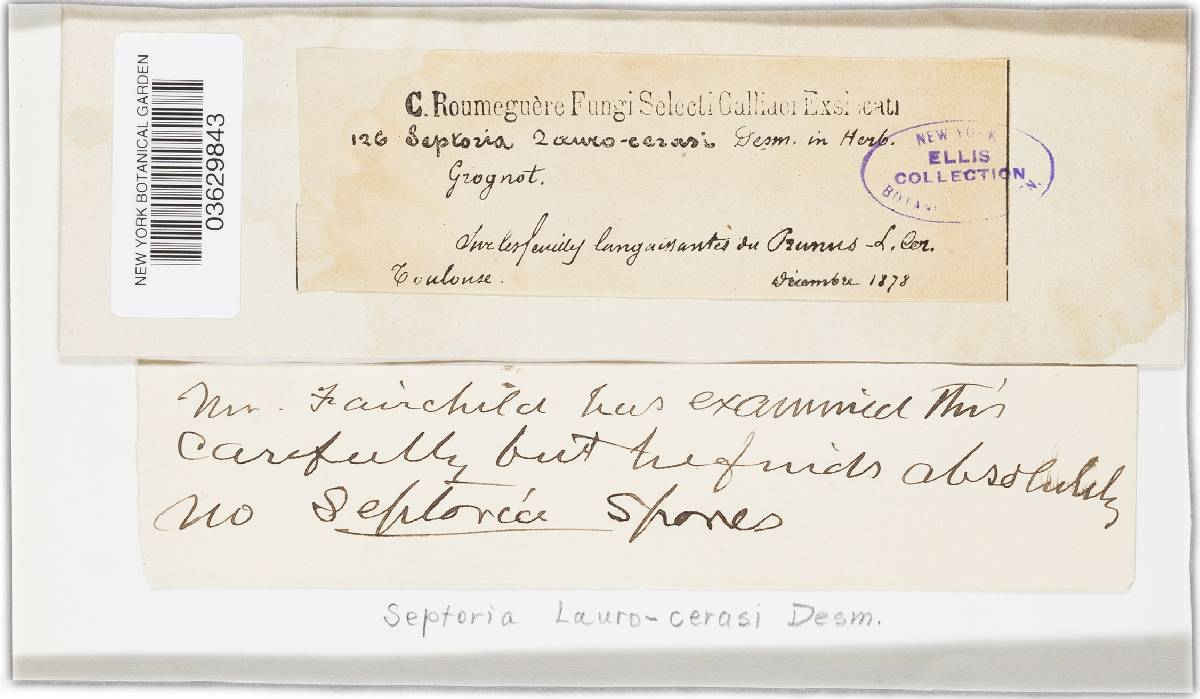 NEW YORK BOTANICAL GARDEN
03629843
C. Roumeguère Fungi Selecti Galliaei Exsiccati
126 Septoria Lauro-cerasi Desm. in Herb.
Grognot.
NEW YORK
ELLIS
COLLECTION
BOTAN
Sur les feuilles languissantes du Prunus-L. Cer.
Toulouse. Décembre 1878
Mr. Fairchild has examined this
carefully but he finds absolutely
no Septoria spores
Septoria Lauro-cerasi Desm.